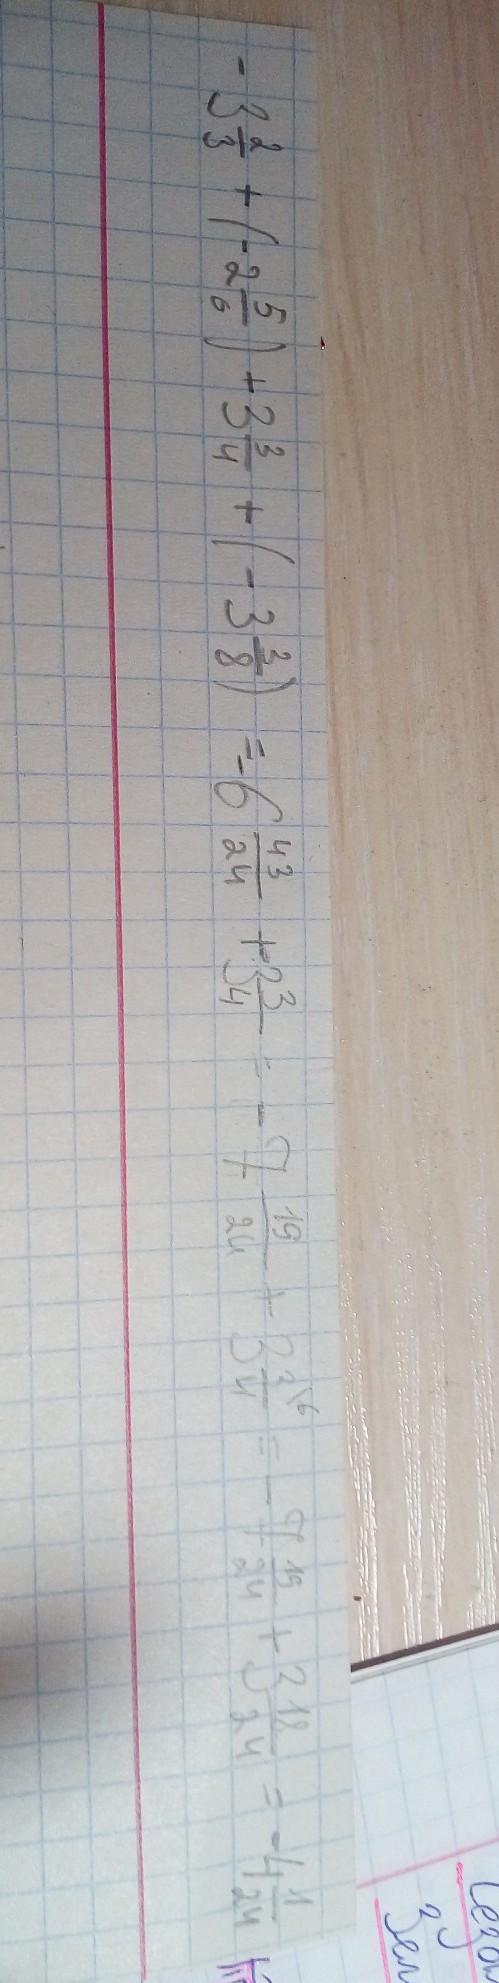 - 3 2/3 + (- 2 5/6) + 3 3/4 + (- 3 3/8) = - 6 43/24 + 3 3/4 = - 7 19/24 + 3 3\6/4 = - 7 19/24 + 3 18/24 = - 4 1/24